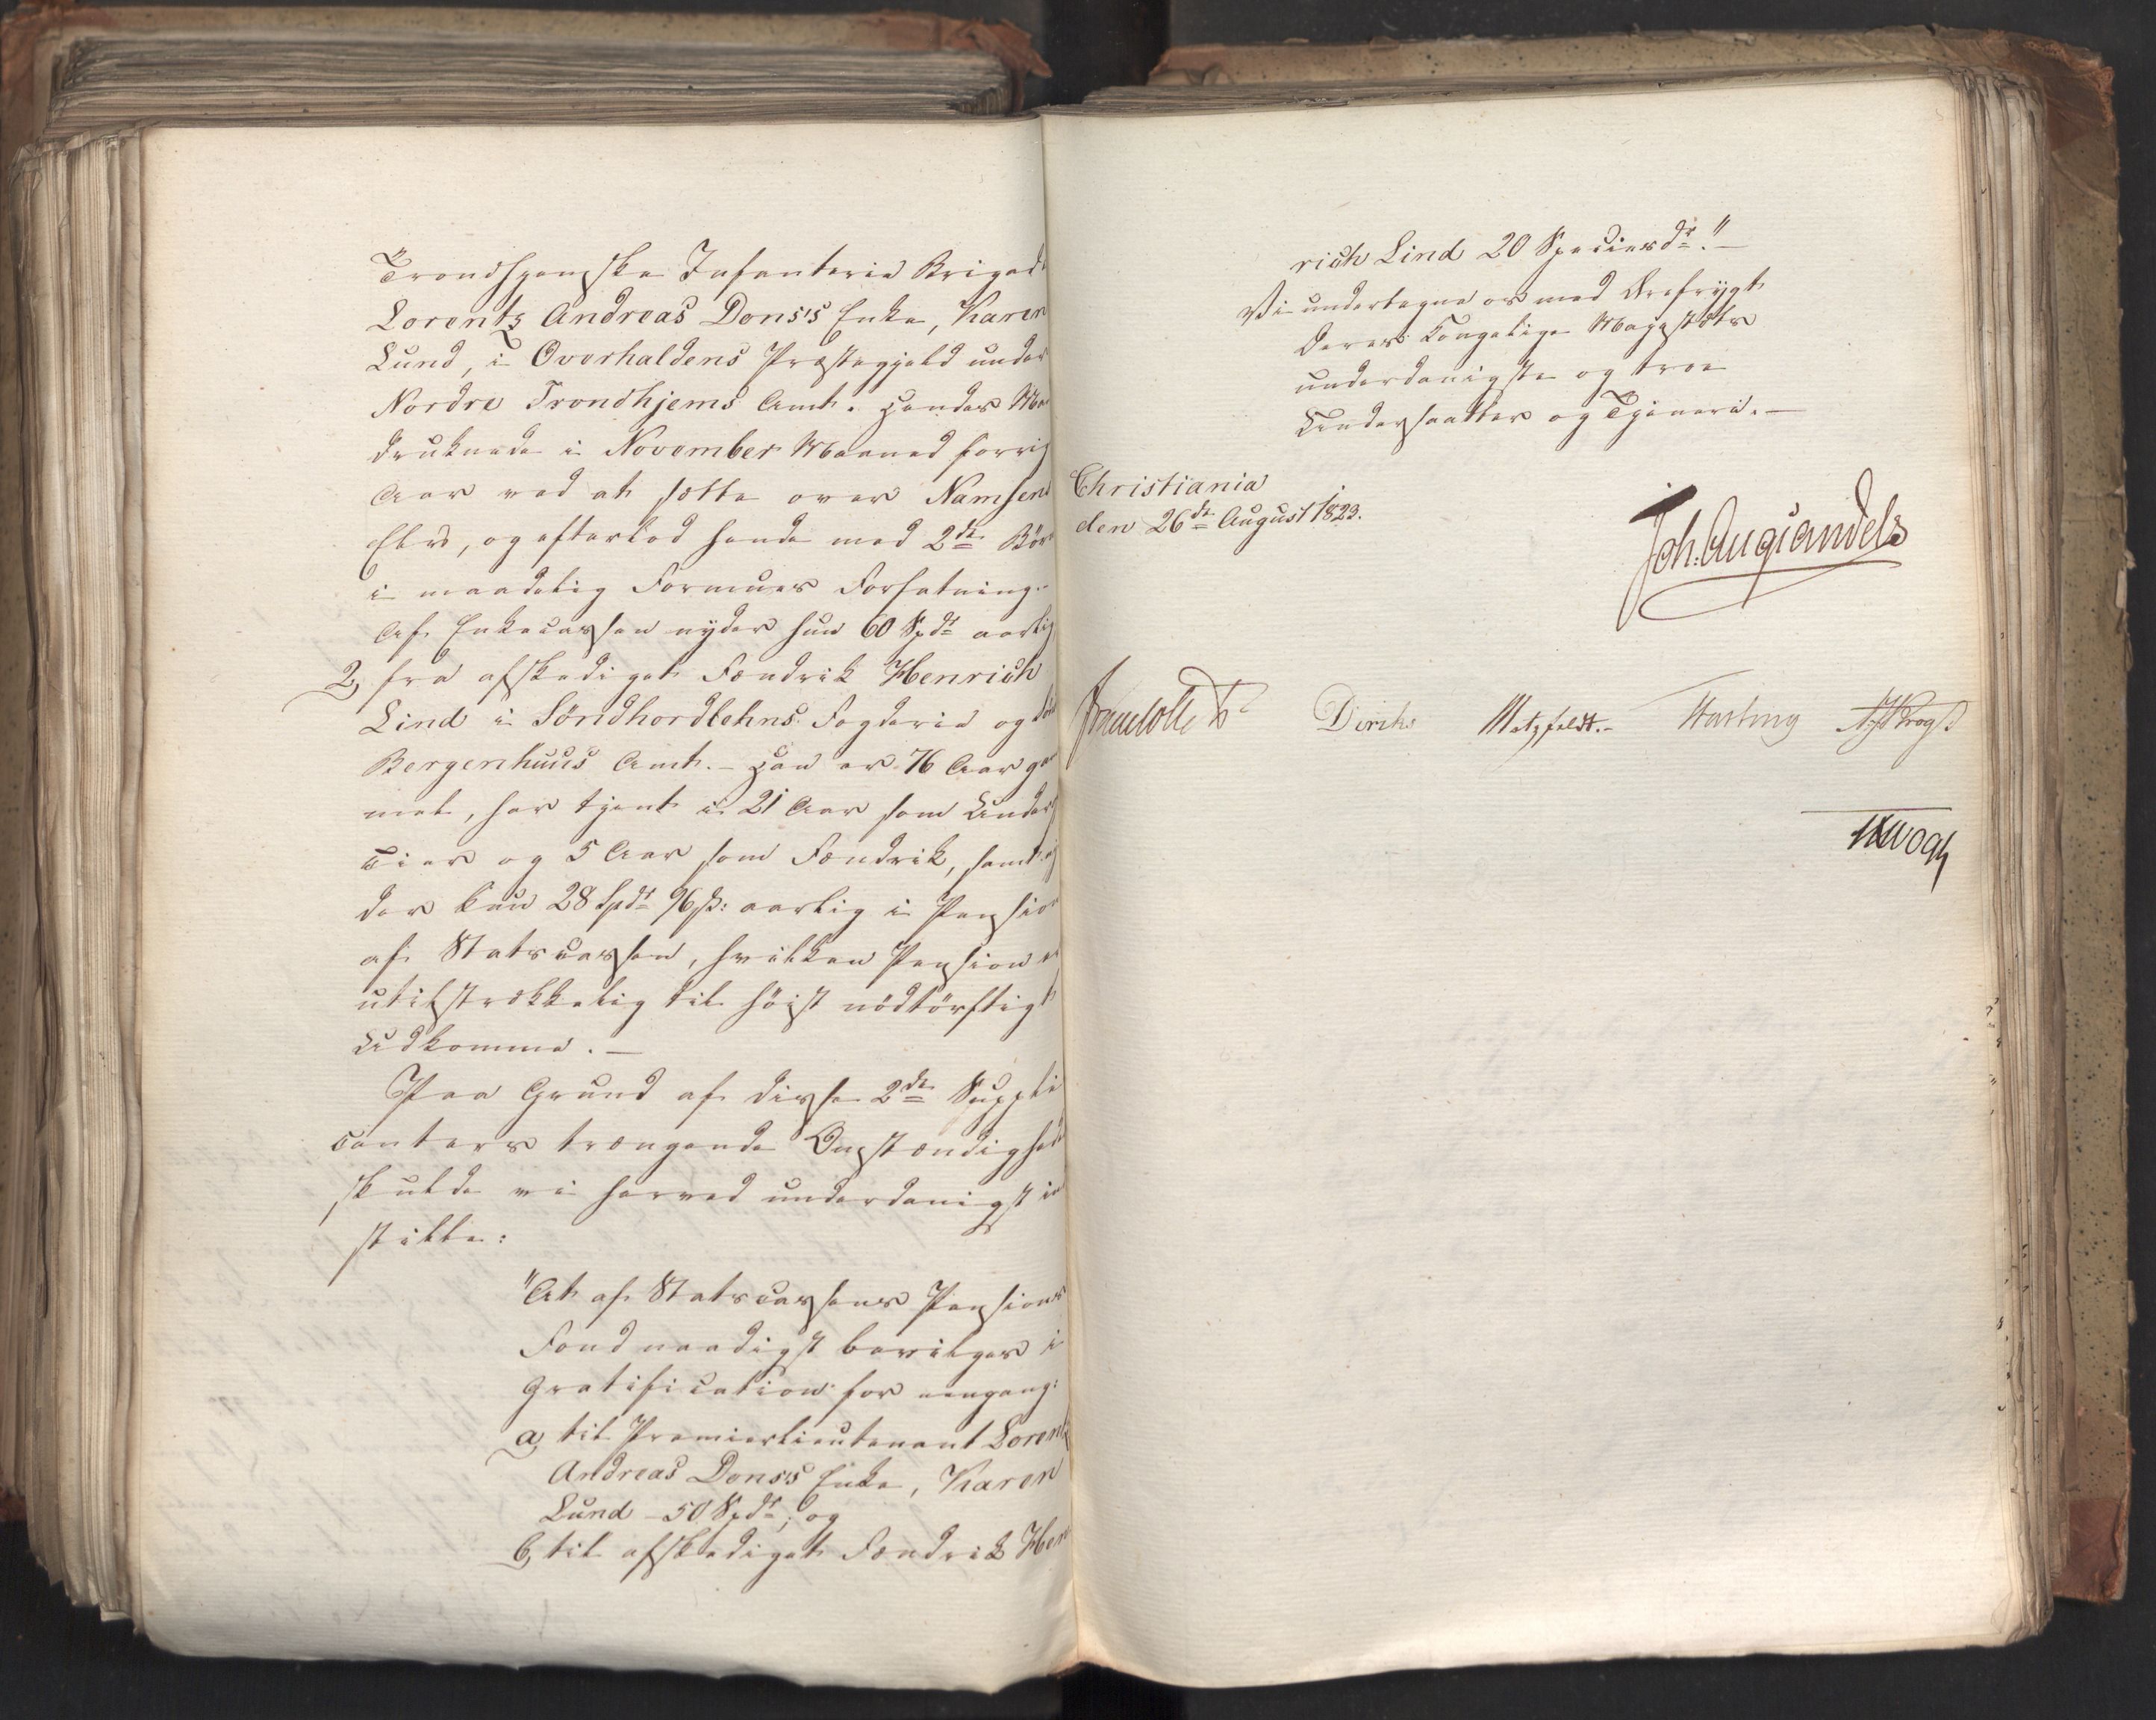 Trondhjemske Infanterie Brigade
Lorentz Andreas Dons's Enke, Karen
Lund, i Overhaldens Præstegjeld under
Nordre Trondhjems Amt. Hendes Man
druknede i November Maaned forrig
Aar ved at sætte over Namsens
Elv, og efterlod hende med 2de Børn
i maadelig Formues Forfatning.
Af Enkecassen nyder hun 60 Spdr aarlig
2, fra afskediget Fændrik Henrich
Lind i Söndhordlehns Fogderie og Söndre
Bergenhuus Amt. – Han er 76 Aar gam
mel, har tjent i 21 Aar som Underof
cier og 5 Aar som Fændrik, samt ny
der kun 28 Spdr 96 ß: aarlig i Pension
af Statscassen, hvilken Pension er
utilstrækkelig til höist nödtörftigt
Udkomme. –
Paa Grund af disse 2de Suppli
canters trængende Omstændigheder
skulde vi herved underdanigst ind
stille:
"At af Statscassens Pensions
Fond naadigst bevilges i
Gratification for eengang:
a, til Premierlieutenant Lorentz
Andreas Dons's Enke, Karen
Lund – 50 Spdr; og
b, til afskediget Fændrik Hen
rich Lind 20 Speciesdr." –
Vi undertegne os med Ærefrygt
Deres Kongelige Majestæts
underdanigste og troe
Undersaatter og Tjenere. –
Christiania
den 26de August 1823.
Joh. Aug. Sandels
Jonas Collett
Diriks
Motzfeldt. –
Fasting
Krogh